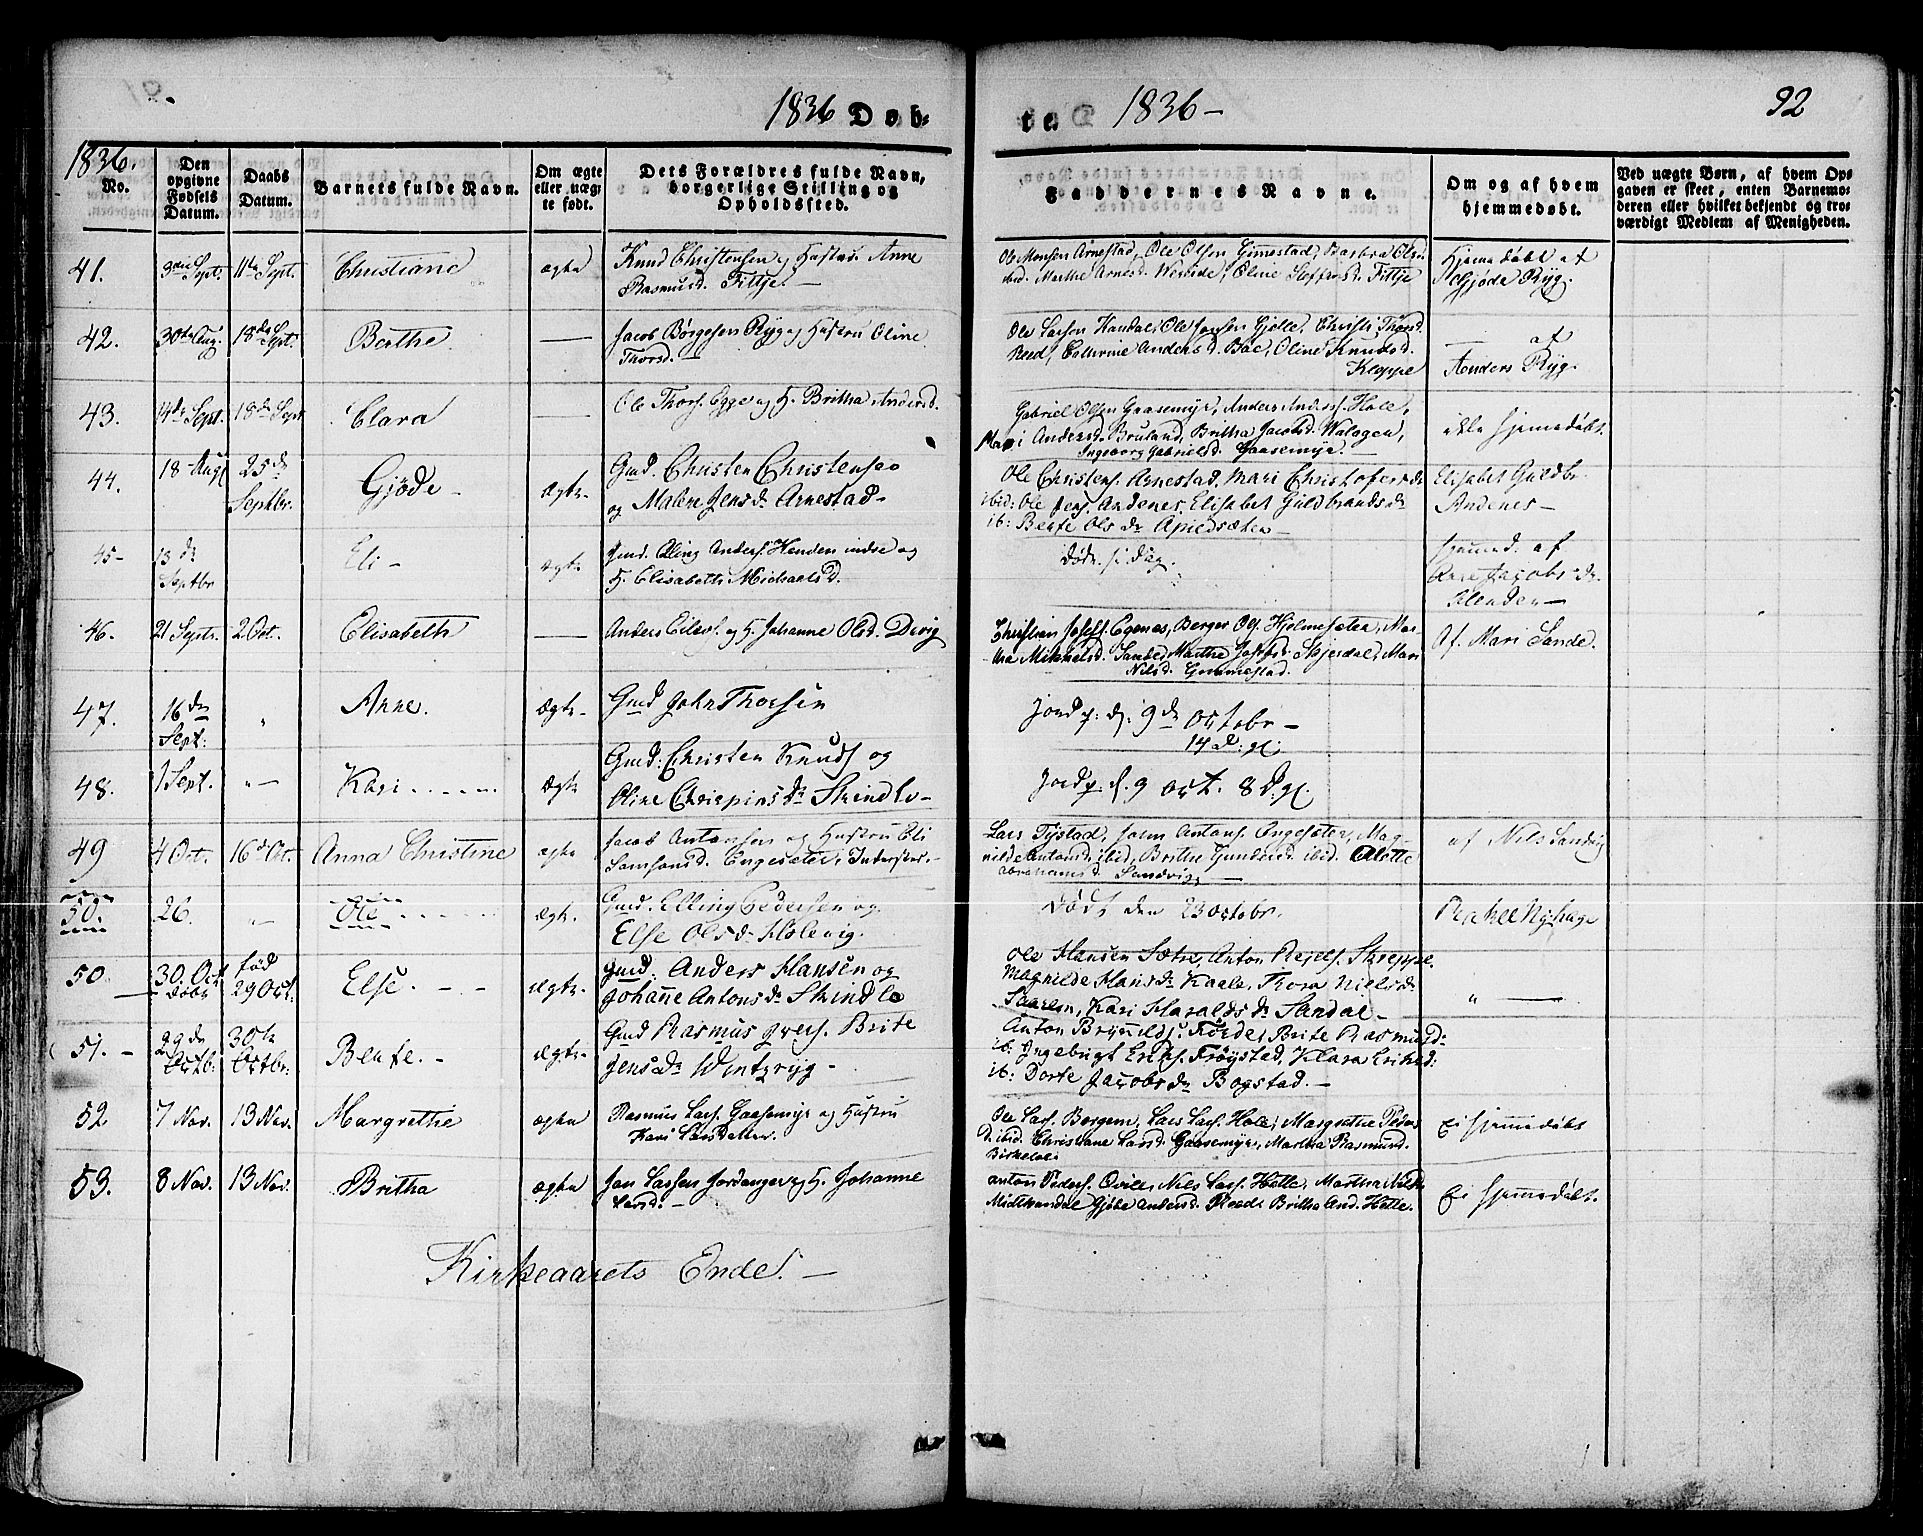 1836 Døb-
te 1836- 92
1836.
No.
Den opgivne Fødsels Datum.
Daabs Datum.
Barnets fulde Navn.
Om ægte eller uægte født.
Dets Forældres fulde Navn, borgerlige Stilling og Opholdssted.
Faddernes Navne.
Om og af hvem hjemmedøbt.
Ved uægte Børn, af hvem Opgaven er skeet, enten Barnemoderen eller hvilket bekjendt og troværdigt Medlem af Menigheden.
41. 3die Sept. 11te Sept. Christiane ægte Knud Christensen og Hustru Anne
Rasmusd. Tittje. —
Ole Monsen Arnestad, Ole Olsen Gimmestad, Barbra Olsd.
ibid. Marthe Arnesd. Oline Steffensd. Tittje
Hjemmedøbt af
Gjøde Ryg.
42. 30te Aug. 18de Sept. Berthe — Jacob Børgesen Ryg og Hustru Oline
Thorsd.
Ole Larsen Handal, Ole Jonsen Gjelle, Christi Thord.
Reed, Cathrine Andersd. Bae, Oline Knudsd.
Kleppe
— af
Anders Ryg.
43. 14de Sept. 18de Sept. Clara — Ole Thors. Egge og H. Britha Andersd.
Gabriel Olsen Gaasemyr, Anders Anders. Hole,
Mari Andersd. Bruland, Britha Jacobsd. Walagen,
Ingeborg Gabrielsd. Gaasemyr. —
ikke hjemedøbt.
44. 18 Aug 25de
Septbr. Gjøde - Ægte- Gmd. Christen Christensen
og Malene Jensdr. Arnestad-
Ole Christens. Arnestad, Mari Christofersdr.
ibid: Ole Jens. Andenes, Elisabet Guldbrandsdr.
ib: Bente Olsdr. Apledsæter —
Elisabet Guldbr.
Andenes —
45- 13de
Septbr Eli - ægte Gmd. Elling Anders. Henden indre og
H. Elisabeth Michaelsd.
døde s. Dag.
hjemmed. af
Ane Jacobsdr.
Henden —
46. 21 Septr. 2 Oct. Elisabeth — Anders Eilevs. og H. Johanne Olsd. Devig
Christian Josefs. Egenes, Berger Ols. Hjelmeseter, Mar-
the Mikkelsd. Sande, Marthe Josefsd. Skjerdal, Mari
Nilsd. Gimmestad.
Af Mari Sande.
47. 16de
Sept. " Anne. Ægte- Gmd John Thorsen
Jordf. d. 9de Octobr —
14 D: gl:
48. 1 Sept. " — Kari - - - - Ægte Gmd: Christen Knuds og
Oline Chrispinsdr Strindlo-
Jordf. d. 9 Oct. 8 D. gl.
49 4 Oct. 16d Oct. Anna Christine ægte Jacob Antonsen og Hustru Eli
Samsonsd. Engeseter, Inderster. -
Lars Tystad, Jonn Antons. Engeseter, Mag-
nilde Antonsd. ibid, Brithe Gundersd. ibid. Alette
Abrahamsd. Sandvig, —
af Nils Sandvig
50. 26. " Ole - - - - Ægt. Gmd. Elling Pedersen og
Else Olsdr. Holevig.
døde den 23 Octobr.
Rakel Nyhage
50. 30. Oct
døbt
fød
29 Oct. Else. - - - Ægte- Gmd. Anders Hansen og
Johanne Antonsdr Strindlo
Ole Hansen Sætre, Anton Skreppe,
Magnilde Hansdr. Kaale, Thora Nielsdr
Kari Haraldsdr Sandal -
" —
51. - 29de
Octb: 30te
Octbr. Bente. - Ægte- Gmd Rasmus Ivers. Brite
Jensdr Winteryg -
Anton Brynilds. Førde, Brite Rasmusd:
ib: Ingebrigt Eriks. Frøystad, Klara Eriksd:
ib: Dorte Jacobsdr Bogstad. -
52 7 Nov. 13 Nov. Margrethe ægte Rasmus Lars. Gaasemyr og Hustru
Kari Larsdatter.
Ole Lars. Bergem, Lars Lars. Hole, Margrethe Peders
D. ibid. Christiane Larsd. Gaasemyr, Martha Rasmusd.
Ei hjemmedøbt
53. 8 Nov. 13 Nov. Britha ægte Jon Larsen Jordanger og H. Johanne
Larsd. -
Anton Peders. Qvile, Nils Lars. Hette, Martha Nilsd.
Midthundal Gjøde Andersd. Reed Britha And. Hette.
Ei hjemmedøbt.
Kirkeaarets Ende. —